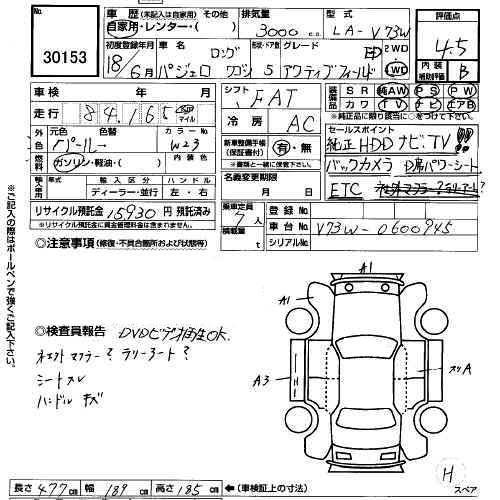 30153
車歴 (未記入は自家用) その他 排気量 型式 評価点
自家用・レンター・( ) 3000 cc LA-V73W 4.5
初度登録年月 車名 ロング 形状・ドア数 グレード 2WD 内装 補助評価 B
18年 6月 パジェロ ワゴン 5 アクティブフィールド 4WD
車検 年 月 シフト FAT 装備品 SR AW PS PW
走行 84,165 km マイル 冷房 AC カワ TV ナビ エアB
※純正品に限り該当に○をつけて下さい
外色 元色 色替 カラーNo 新車整備手帳 (保証書付) 有・無 セールスポイント
パール W23 ※書類と一緒に提出して下さい 純正HDDナビ.TV!!
燃料 ガソリン・軽油・( ) 内装色 名義変更期限 バックカメラ D席パワーシート
輸入車 年式 輸入区分 ハンドル 月 日 ETC
ディーラー・並行 左・右
リサイクル預託金 15930 円 預託済み 乗車定員 7人 登録No
※リサイクル預託金に資金管理料金は含まれません。 積載量 t 車台No V73W-0600945
シリアルNo
◎注意事項 (修復・不具合箇所および状態等)
※ご記入の際はボールペンで強くご記入下さい。
A1
A1
◎検査員報告 DVDビデオ再生OK.
社外マフラー? ラリーアート?
シートスレ A3 スリA
ハンドルキズ
H
スペア
長さ 477 cm 幅 189 cm 高さ 185 cm ←(車検証上の寸法)